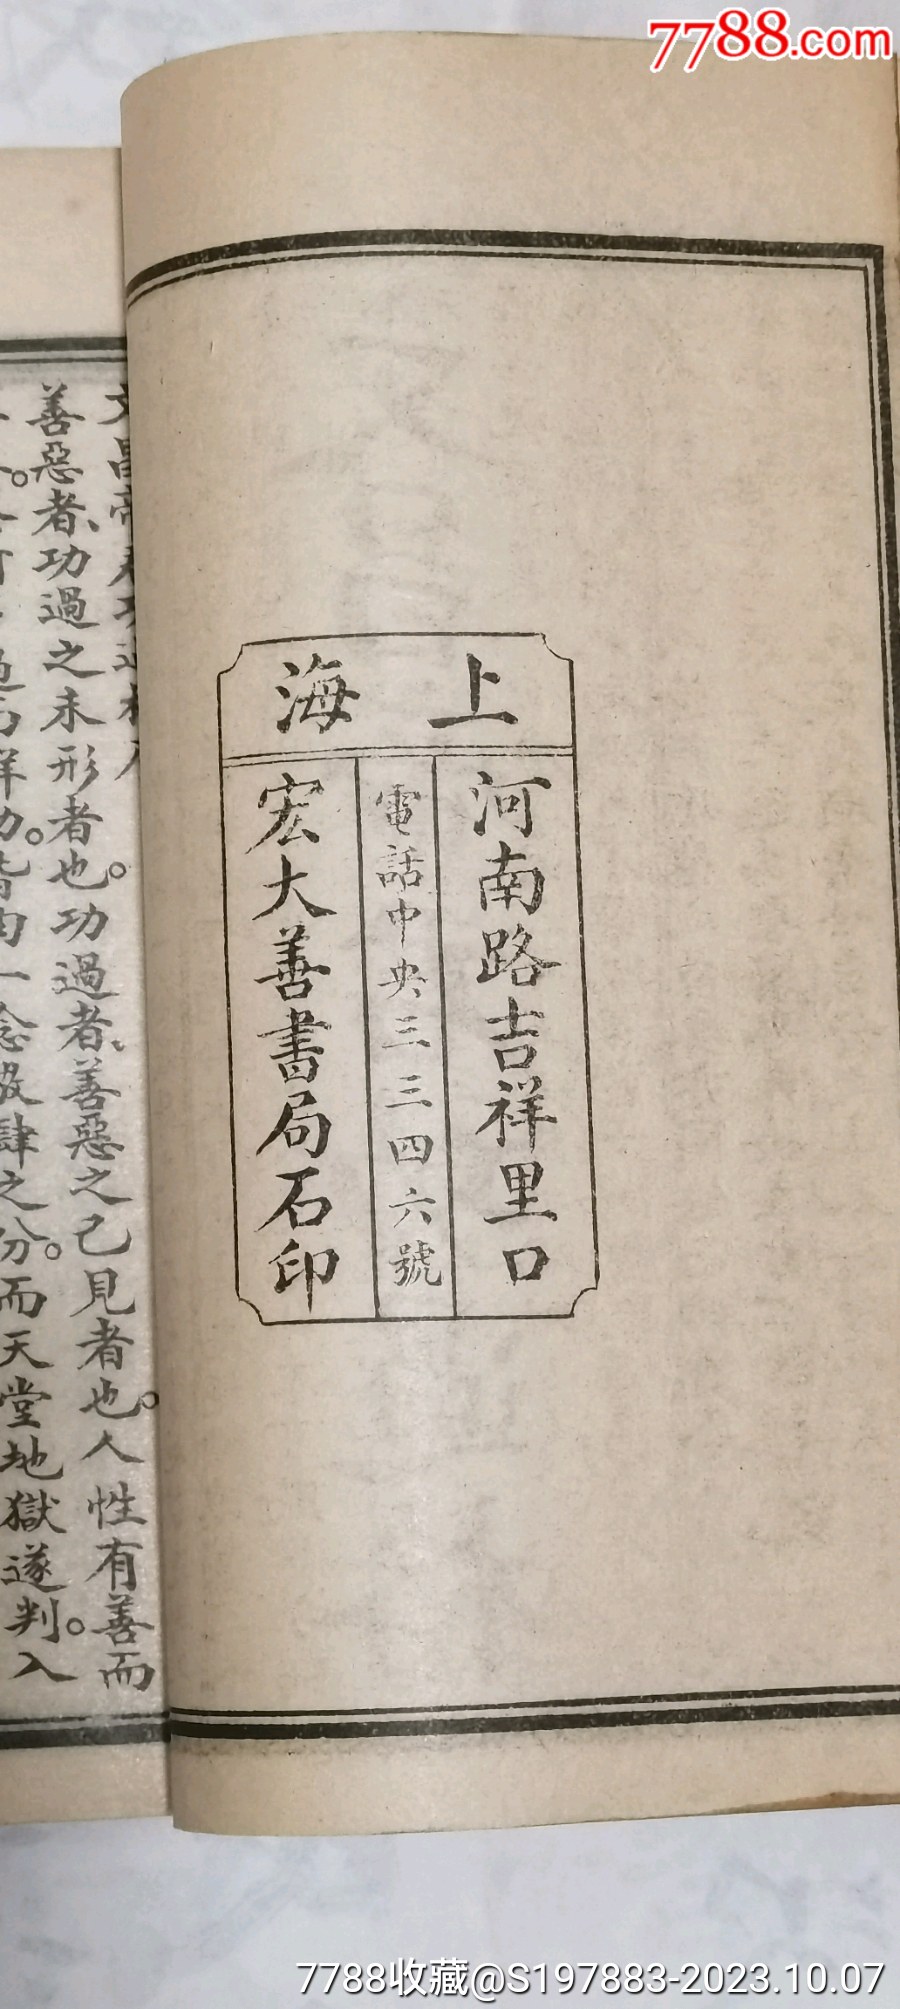 7788.com
上海
河南路吉祥里口
電話中央三三四六號
宏大善書局石印
善惡者、功過之未形者也。功過者、善惡之已見者也。人性有善而
一念敬肆之分。而天堂地獄遂判。入
7788收藏@S197883-2023.10.07